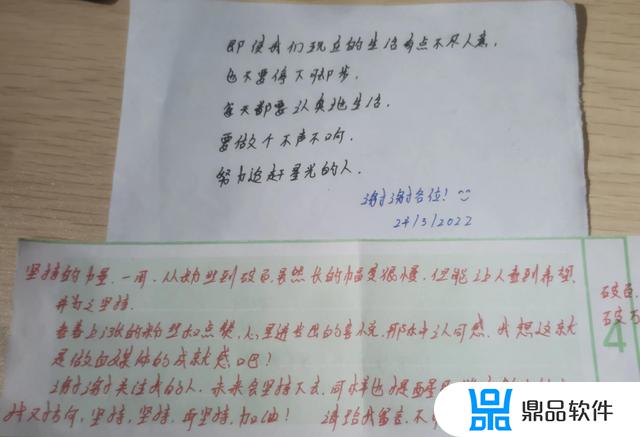 即使我们现在的生活有点不尽人意,
也不要停下脚步.
每天都要认真地生活.
要做个不声不响.
努力追赶星光的人.
谢谢各位!
24/3/2022
坚持的力量.一周.从粉丝到破百虽然长的幅度很慢.但能让人看到希望.
并为之坚持.
看着上涨的粉丝和点赞,心里迸发出的喜悦.那种认可感.我想这就
是做自媒体的成就感吧!
谢谢关注我的人.未来会坚持下去.
坚持,坚持.再坚持.加油! 请给我留言.不
破百.
破
4
鼎品软件